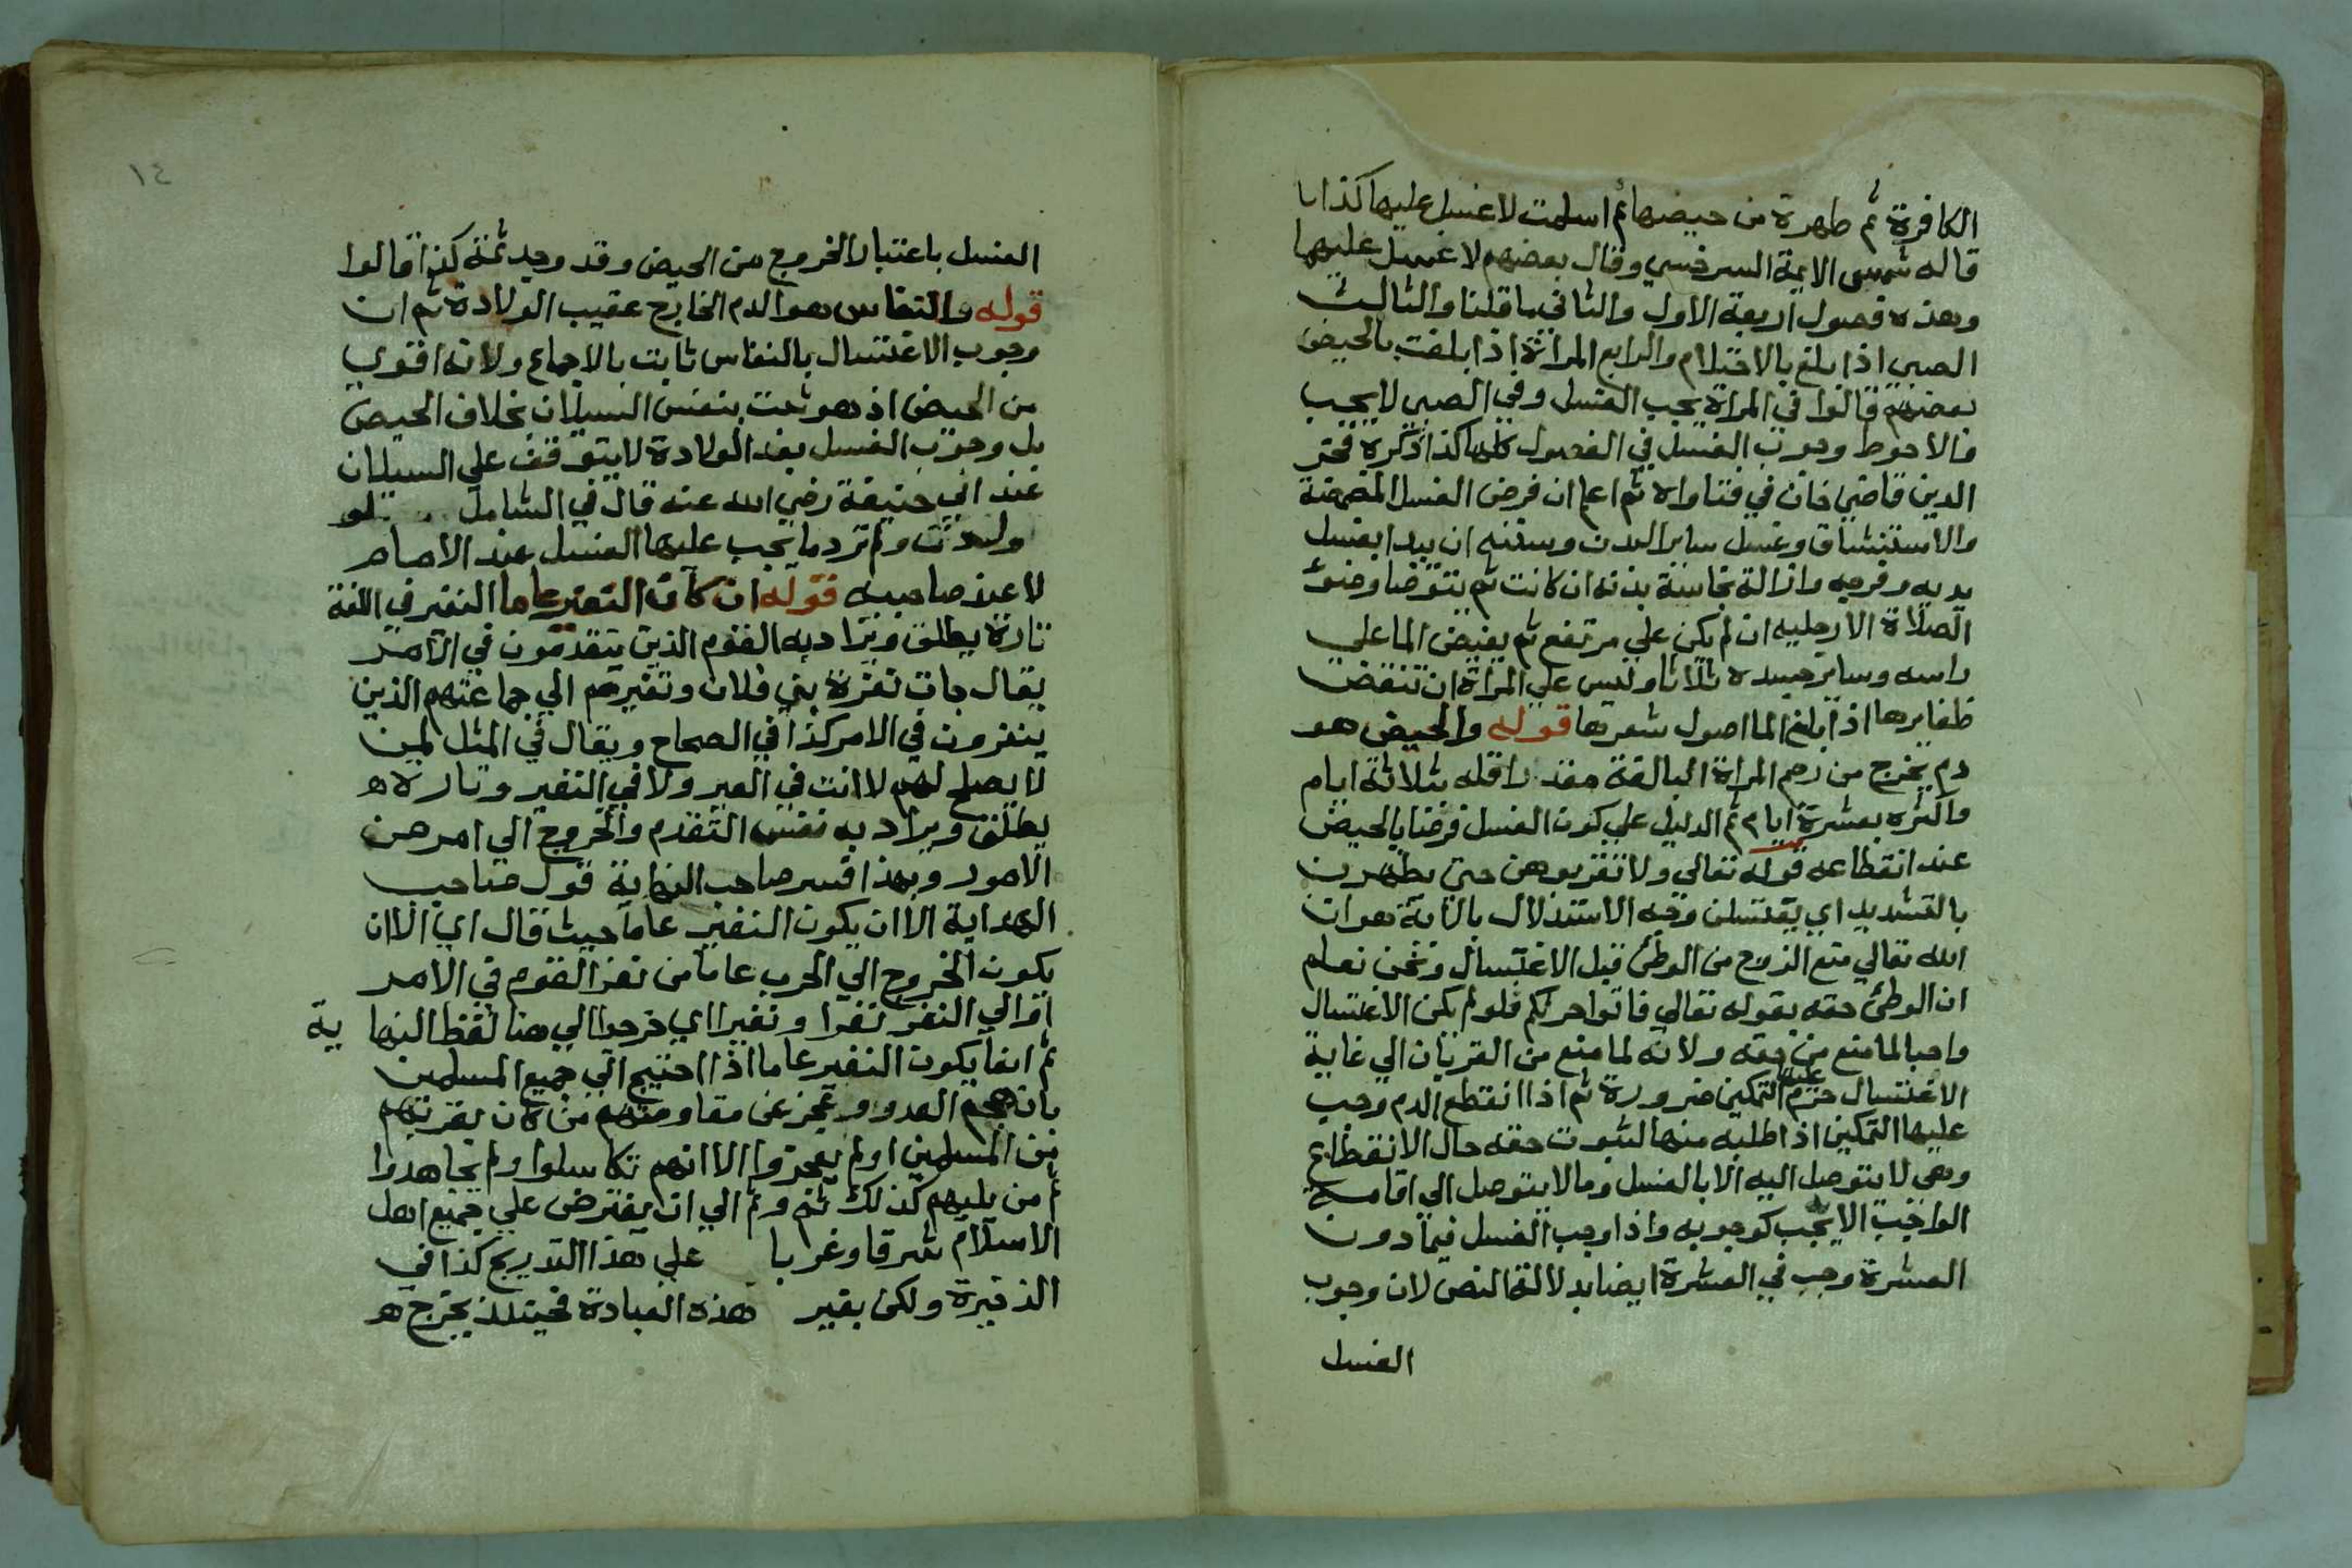 الكافرة ثم طهرة من حيضها ثم اسلمت لا غسل عليها كذا
قاله شمس الايمة السرخسي وقال بعضهم لا غسل عليها
وهذه فصول اربعة الاول والثاني ما قلنا والثالث
الصبي اذا بلغ بالاحتلام والرابع المراة اذا بلغت بالحيض
بعضهم قالوا في المراة يجب الغسل وفي الصبي لا يجب
فالاحوط وجوب الغسل في الفصول كلها كذا ذكره فخر
الدين قاضي خان في فتاواه ثم اعلم ان فرض الغسل المضمضة
والاستنشاق وغسل ساير البدن وسننه ان يبدا بغسل
يديه وفرجه وازالة نجاسة بدنه ان كانت ثم يتوضا وضوء
الصلاة الا رجليه ان لم يكن علي مرتفع ثم يفيض الما علي
راسه وساير جسده ثلاثا وليس علي المراة ان تنقض
ظفايرها اذا بلغ الما اصول شعرها قوله والحيض هو
دم يخرج من رحم المراة البالغة مقدر اقله ثلاثة ايام
واكثره بعشرة ايام ثم الدليل علي كون الغسل فرضا بالحيض
عند انقطاعه قوله تعالي ولا تقربوهن حتي يطهرن
بالتشديد اي يغتسلن وجه الاستدلال بالاية هو ان
الله تعالي منع الزوج من الوطئ قبل الاغتسال ونحن نعلم
ان الوطئ حقه بقوله تعالي فاتوا حرثكم فلو لم يكن الاغتسال
واجبا لما منع من حقه ولانه لما منع من القربان الي غاية
الاغتسال حرم عليها التمكين ضرورة ثم اذا انقطع الدم وجب
عليها التمكين اذا طلبه منها لثبوت حقه حال الانقطاع
وهي لا يتوصل اليه الا بالغسل وما لا يتوصل الي اقامة
الواجب الا يجب كوجوبه واذا وجب الغسل فيما دون
العشرة وجب في العشرة ايضا بدلالة النص لان وجوب
الغسل
١٤
الغسل باعتبار الخروج من الحيض وقد وجد ثمة كذا قالوا
قوله والنفاس هو الدم الخارج عقيب الولادة ثم ان
وجوب الاغتسال بالنفاس ثابت بالاجماع ولانه اقوي
من الحيض اذ هو ثبت بنفس السيلان بخلاف الحيض
بل وجوب الغسل بعد الولادة لا يتوقف علي السيلان
عند ابي حنيفة رضي الله عنه قال في الشامل لو
ولدت ولم تر دما يجب عليها الغسل عند الامام
لا عند صاحبيه قوله ان كان النفير عاما النفر في اللغة
تارة يطلق ويراد به القوم الذين يتقدمون في الامر
يقال جات نفرة بني فلان ونفيرهم الي جماعتهم الذين
ينفرون في الامر كذا في الصحاح ويقال في المثل لمن
لا يصلح لهم لا انت في العير ولا في النفير وتارة ه
يطلق ويراد به نفس التقدم والخروج الي امر من
الامور وبهذا فسر صاحب النهاية قول صاحب
الهداية الا ان يكون النفير عاما حيث قال اي الا ان
يكون الخروج الي الحرب عاما من نفر القوم في الامر
او الي النفر نفرا ونفيرا اي خرجوا الي هنا لفظ النهاية
ثم انما يكون النفير عاما اذا احتيج الي جميع المسلمين
بان هجم العدو وعجز عن مقاومتهم من كان بقربهم
من المسلمين او لم يعجزوا الا انهم تكاسلوا ولم يجاهدوا
ثم من يليهم كذلك ثم وثم الي ان يفترض علي جميع اهل
الاسلام شرقا وغربا علي هذا التدريج كذا في
الذخيرة ولكن بقير هذه العبادة فحينئذ يخرج ه